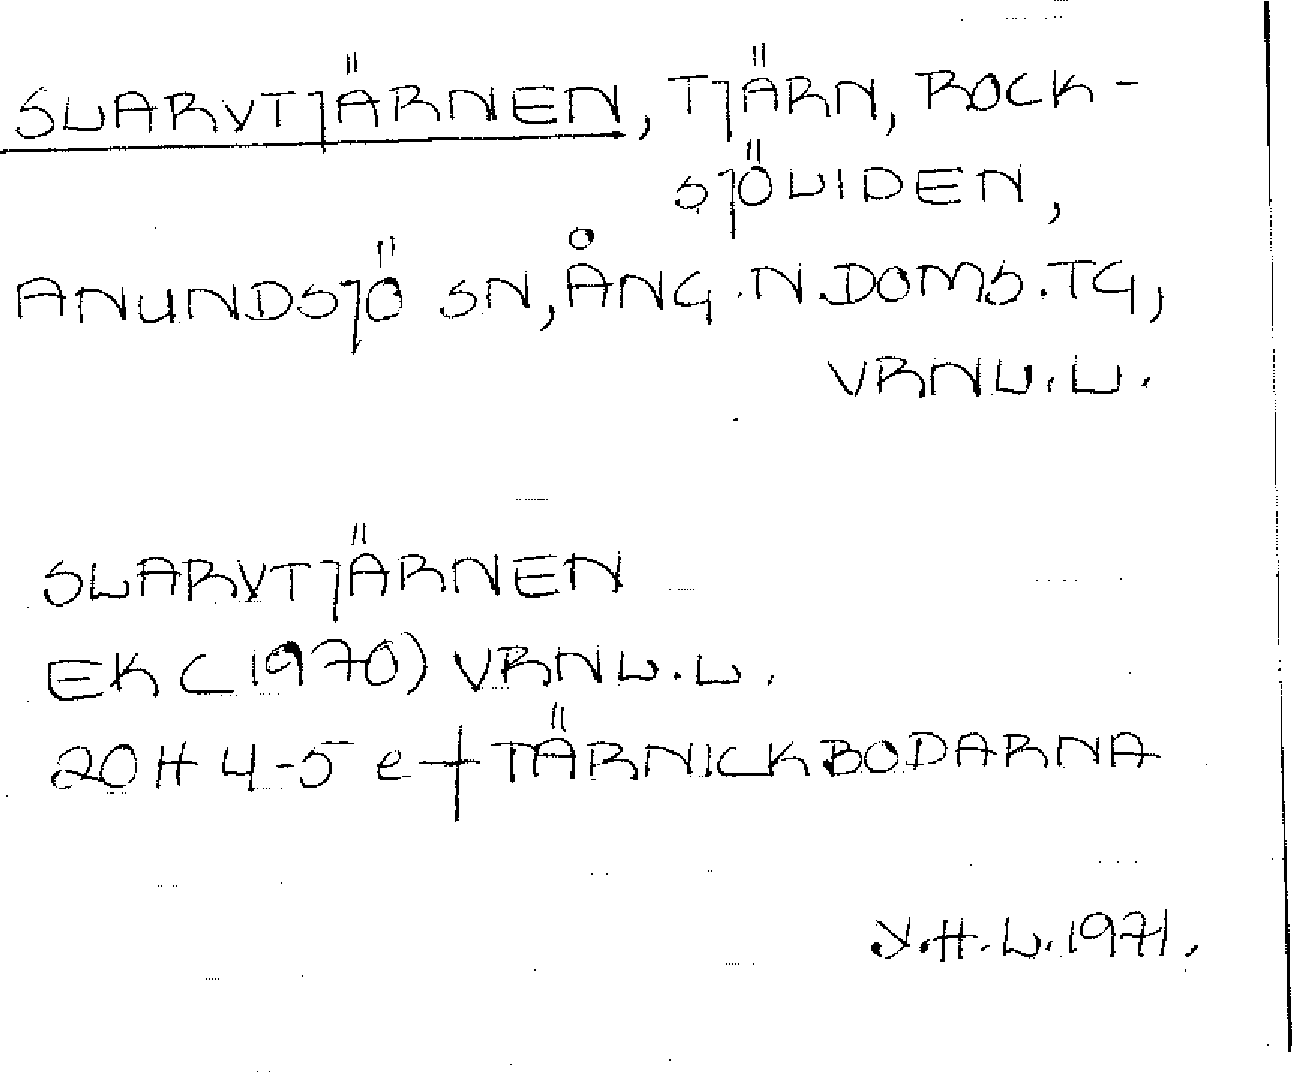 SLARVTJÄRNEN, TJÄRN, ROCK-
SJÖLIDEN,
ANUNDSJÖ SN, ÅNG. N. DOMS. TG,
VRNL. L.
SLARVTJÄRNEN
EK (1970) VRNL. L.
20H 4-5 e+f TÄRNICKBODARNA
Y. H. L. 1971.